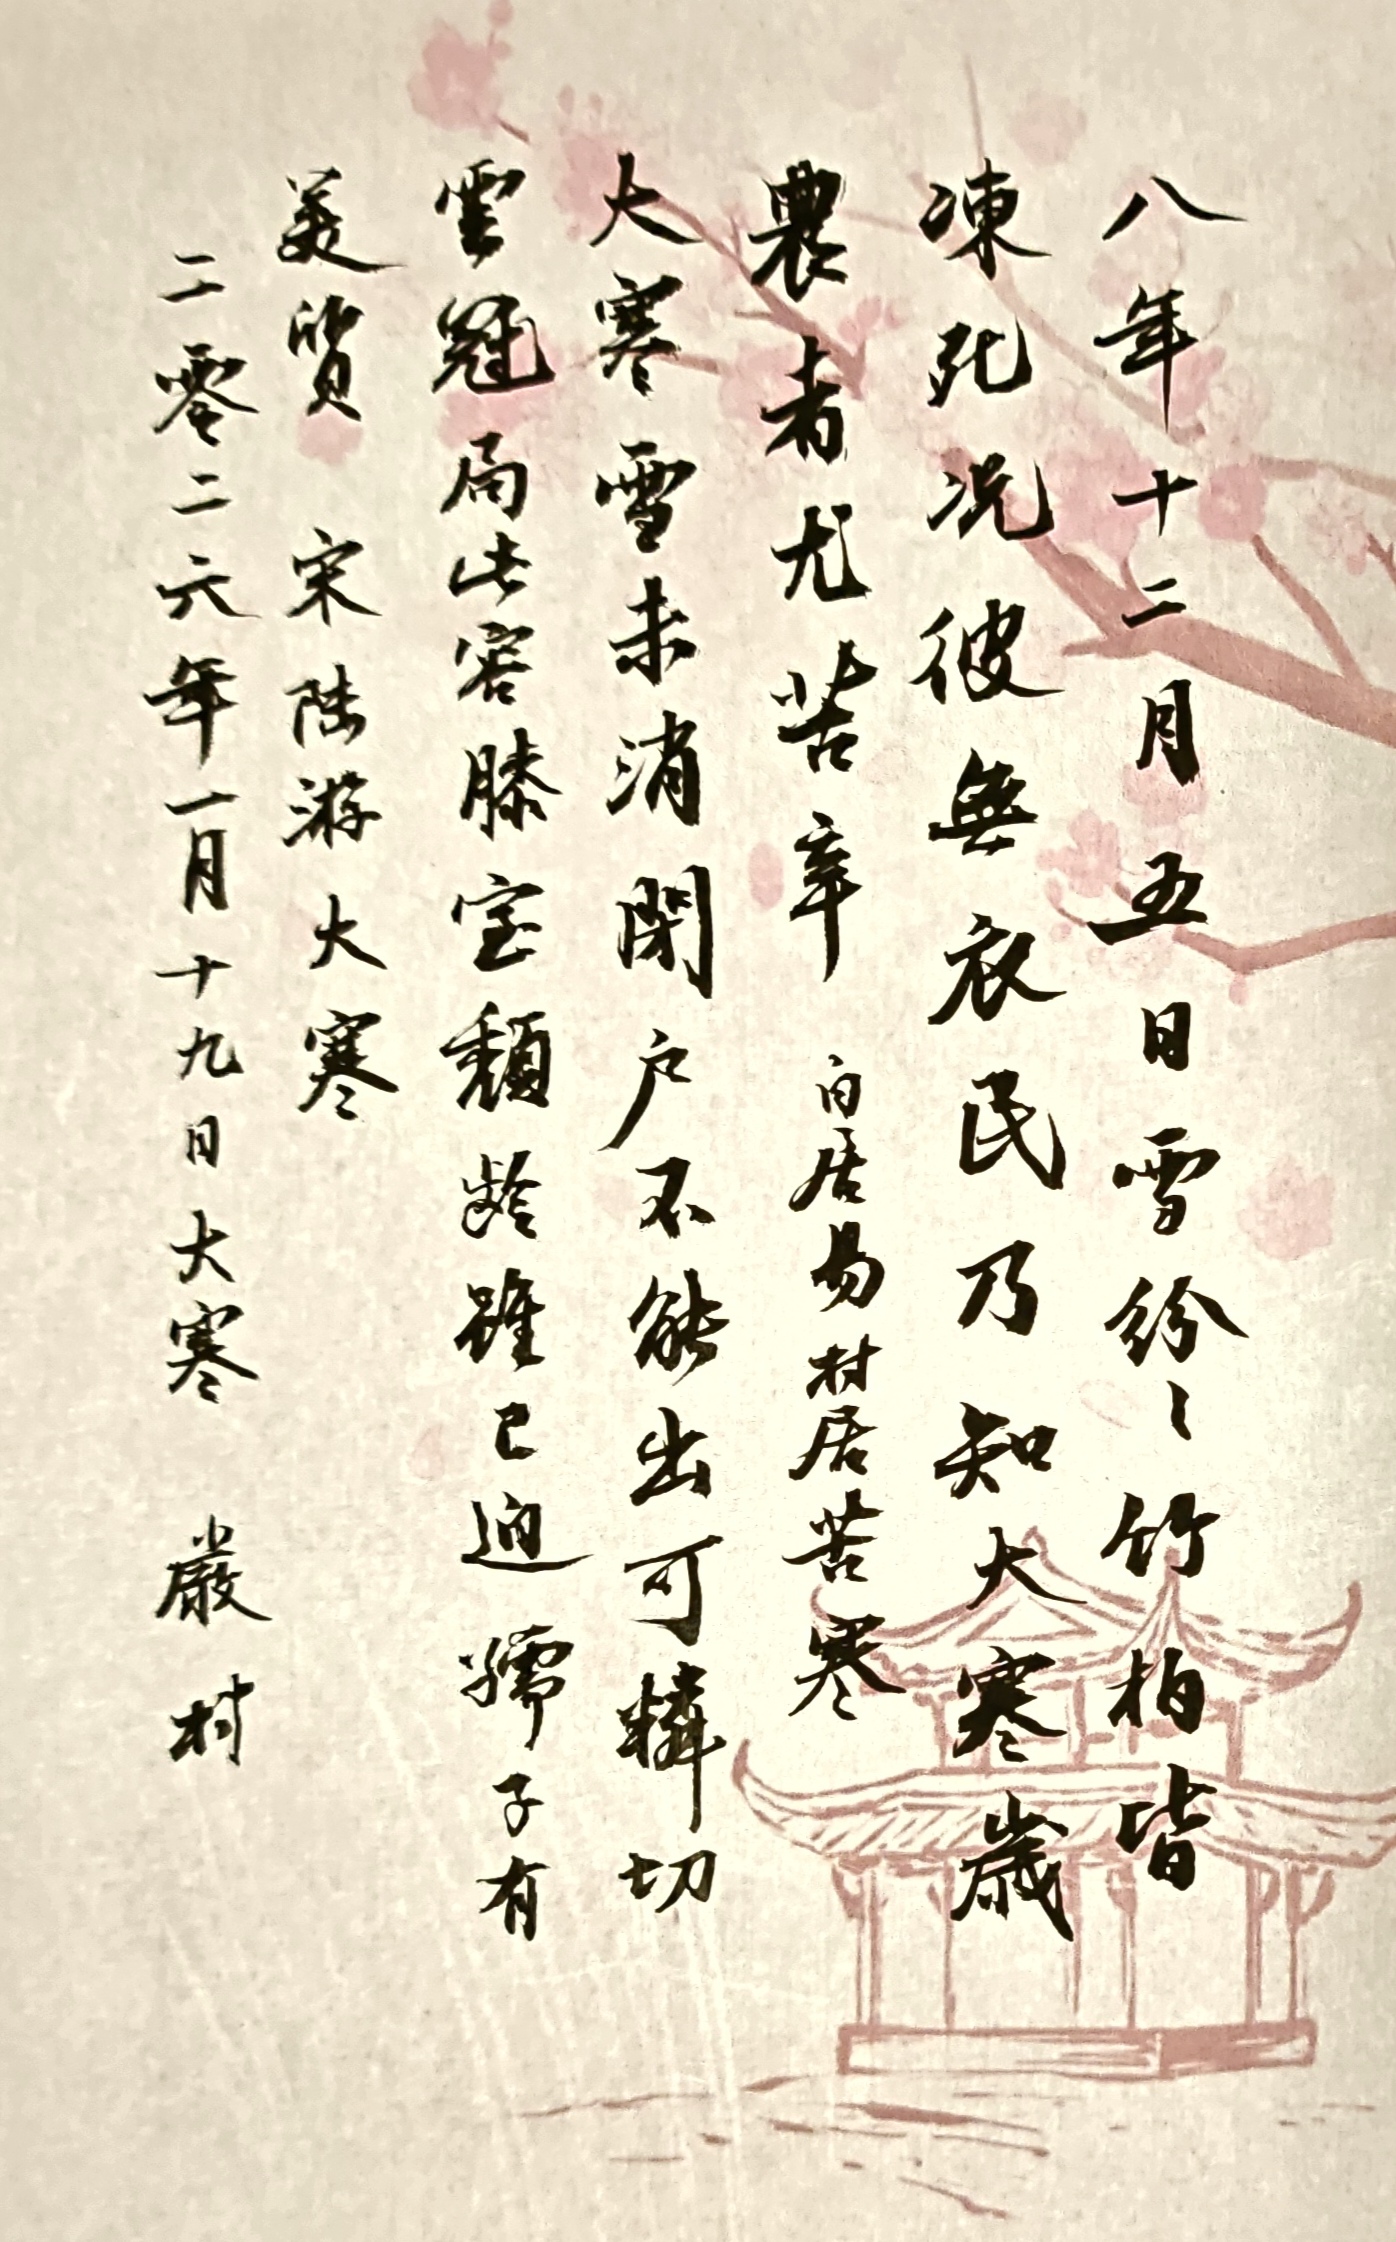 八年十二月五日雪紛〻竹柏皆
凍死况彼無衣民乃知大寒歲
農者尤苦辛 白居易村居苦寒
大寒雪未消閉户不能出可憐切
雲冠局此容膝室頹齡雖已迫孺子有
美質 宋陆游大寒
二零二六年一月十九日大寒 嚴村